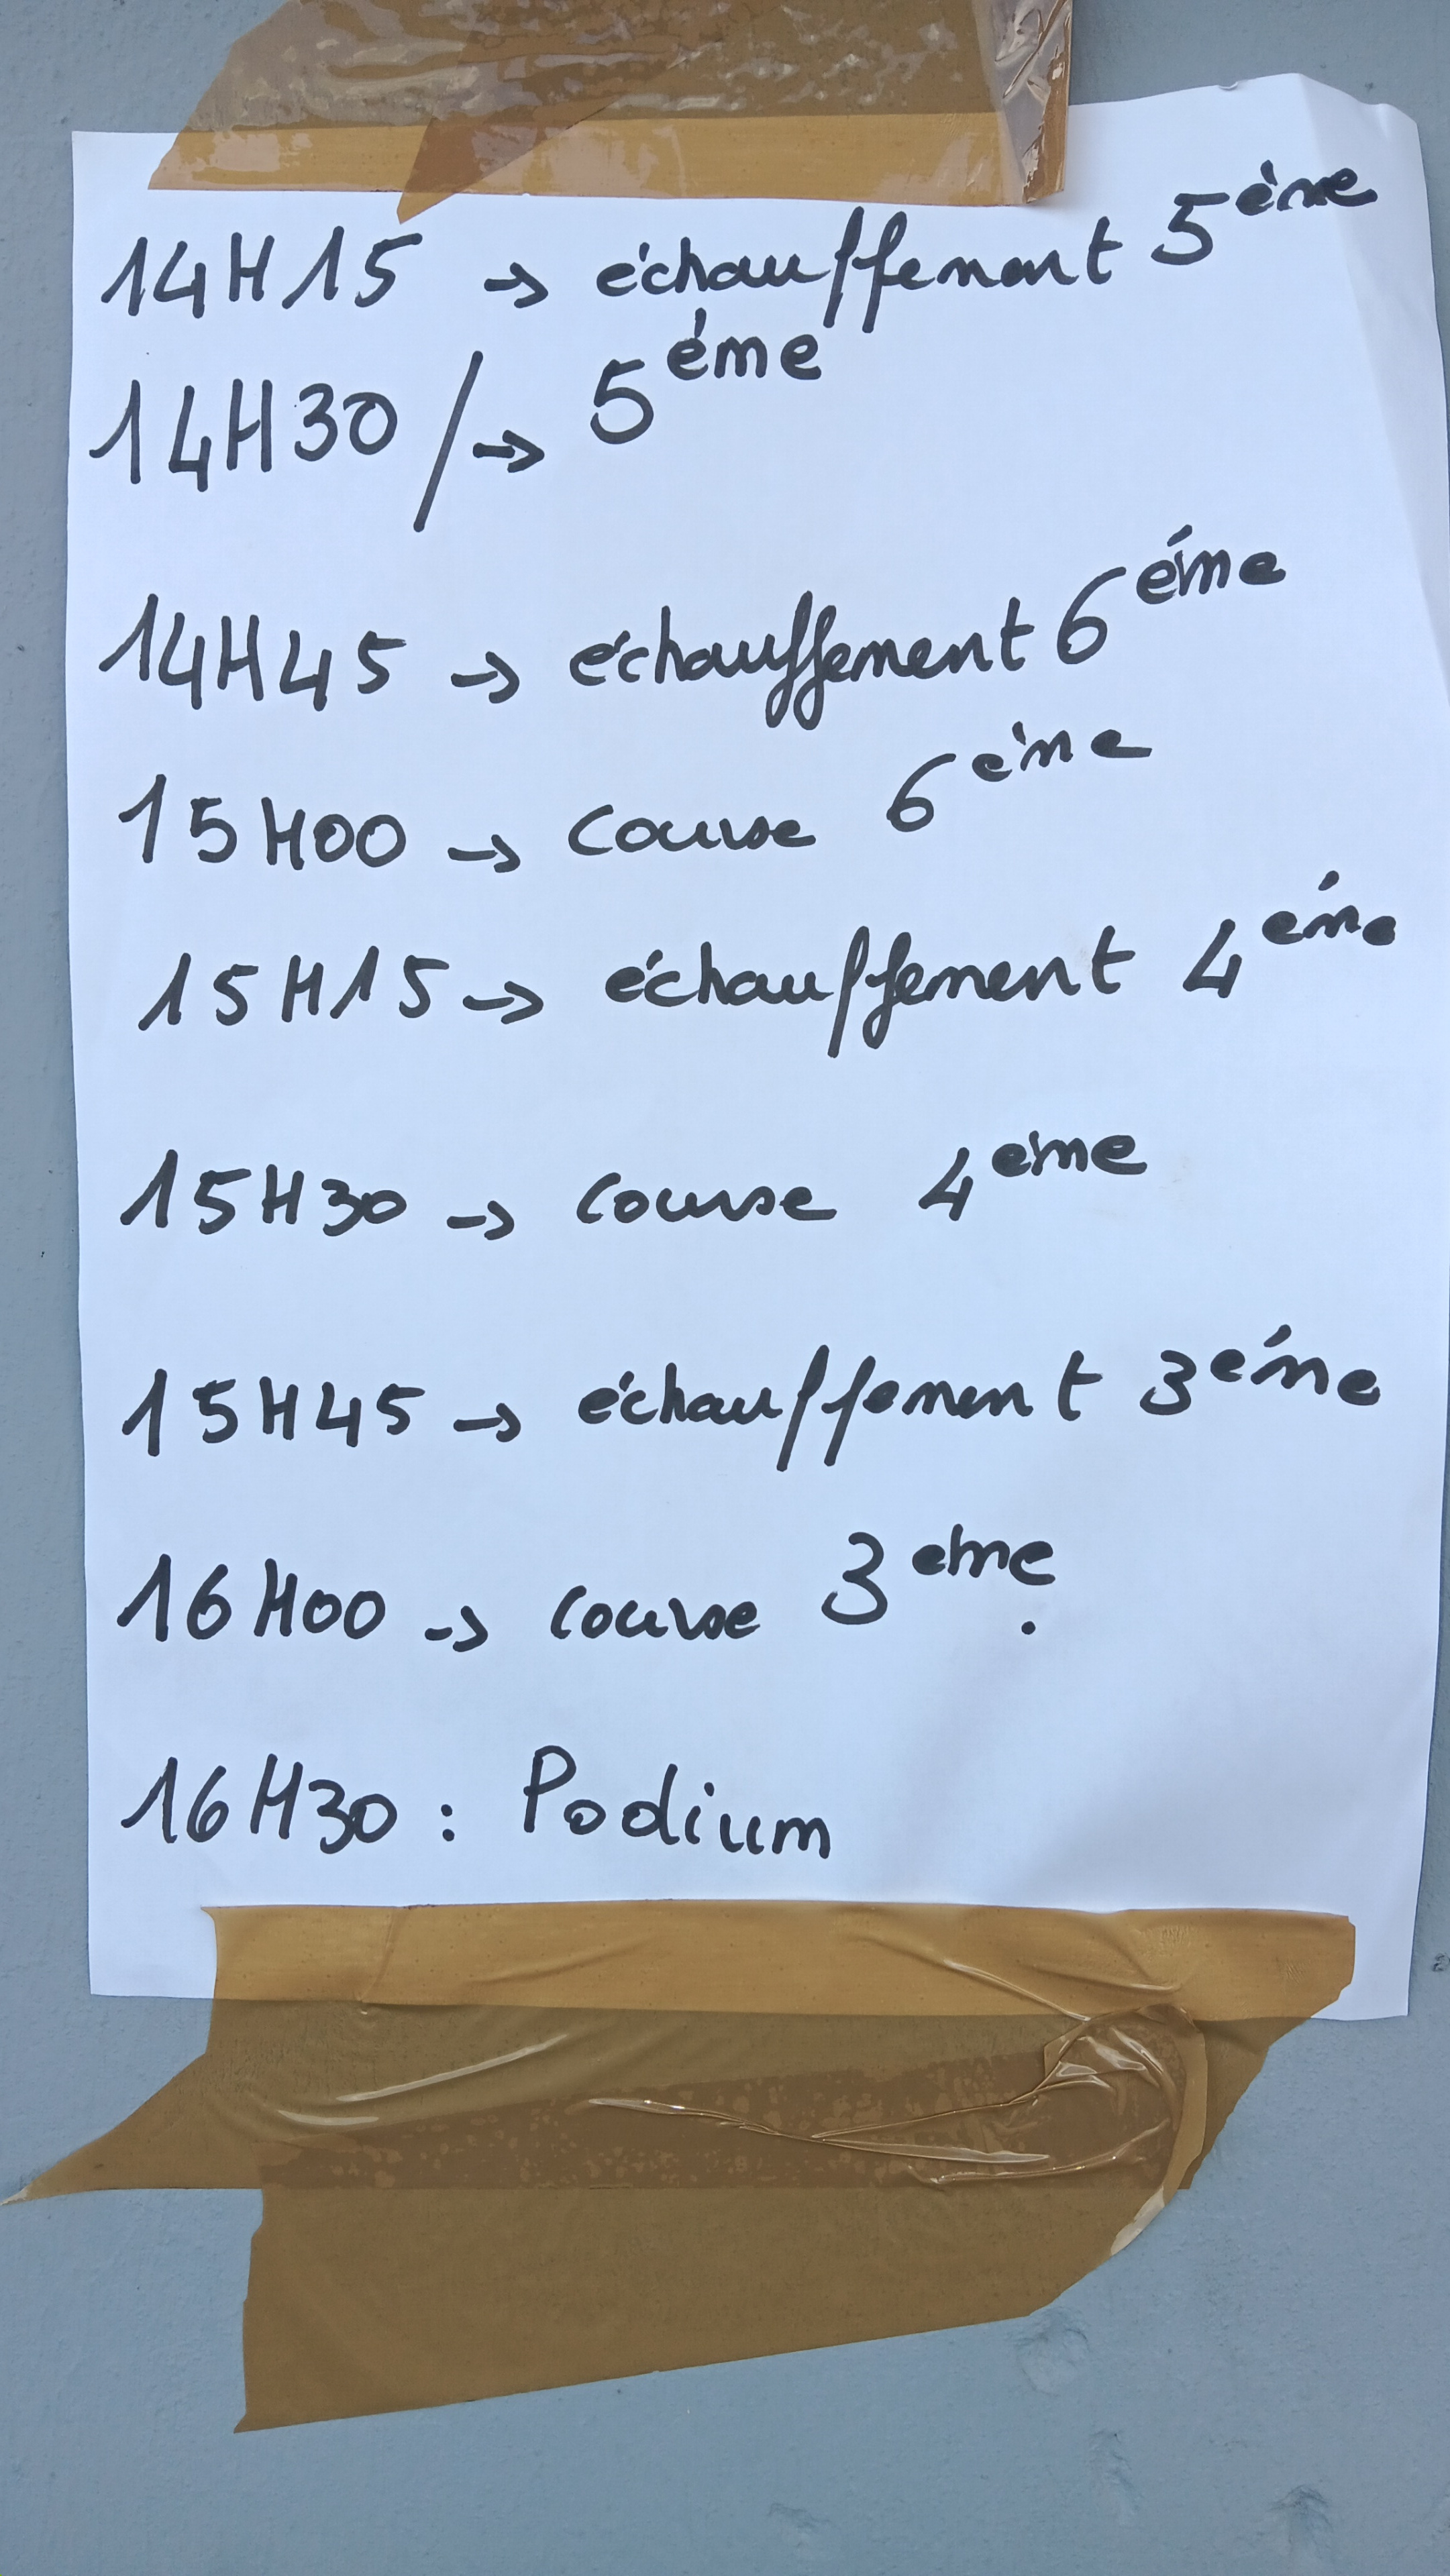 14H15 → échauffement 5ème
14H30 /→ 5éme
14H45 → échauffement 6éme
15H00 → course 6ème
15H15 → échauffement 4éme
15H30 → course 4eme
15H45 → échauffement 3éme
16H00 → course 3eme.
16H30 : Podium